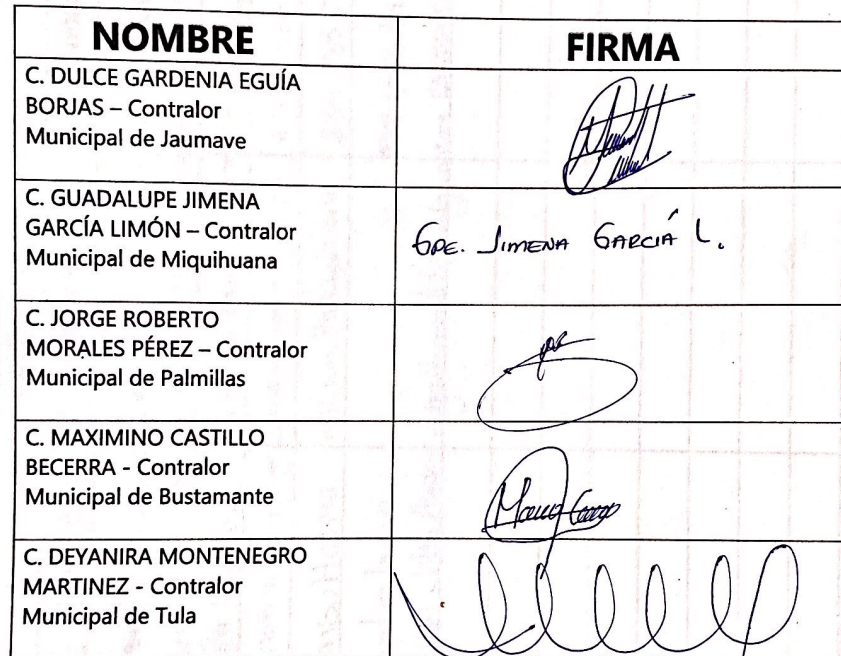 NOMBRE
FIRMA
C. DULCE GARDENIA EGUÍA
BORJAS – Contralor
Municipal de Jaumave
C. GUADALUPE JIMENA
GARCÍA LIMÓN – Contralor
Municipal de Miquihuana
GPE. JIMENA GARCÍA L.
C. JORGE ROBERTO
MORALES PÉREZ – Contralor
Municipal de Palmillas
C. MAXIMINO CASTILLO
BECERRA - Contralor
Municipal de Bustamante
C. DEYANIRA MONTENEGRO
MARTINEZ - Contralor
Municipal de Tula